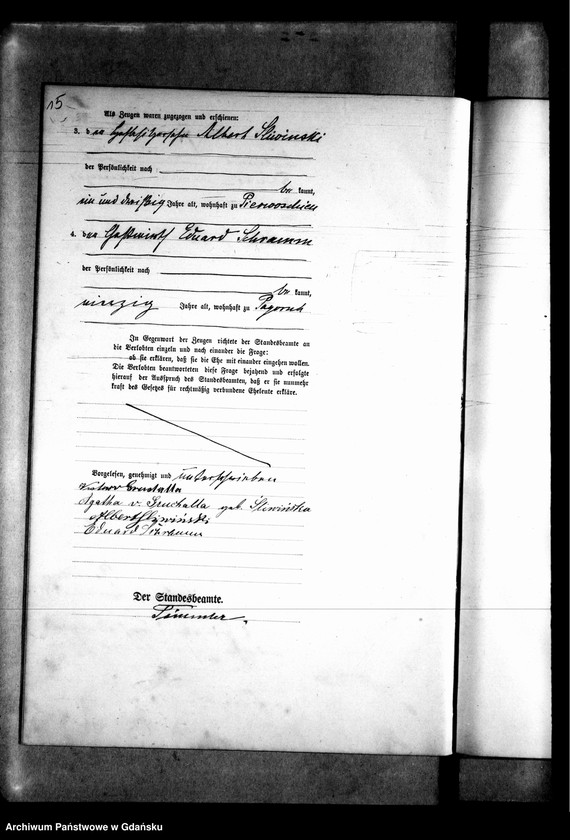 15
Als Zeugen waren zugezogen und erschienen:
3. der Hofbesitzersohn Albert Sliwinski
der Persönlichkeit nach
be kannt,
ein und dreißig Jahre alt, wohnhaft zu
4. der Gastwirth Eduard Schramm
der Persönlichkeit nach
be kannt,
vierzig Jahre alt, wohnhaft zu
In Gegenwart der Zeugen richtete der Standesbeamte an
die Verlobten einzeln und nach einander die Frage:
ob sie erklären, daß sie die Ehe mit einander eingehen wollen.
Die Verlobten beantworteten diese Frage bejahend und erfolgte
hierauf der Ausspruch des Standesbeamten, daß er sie nunmehr
kraft des Gesetzes für rechtmäßig verbundene Eheleute erkläre.
Vorgelesen, genehmigt und unterschrieben
Gruchalla
Agatha v. Gruchalla geb. Sliwińska
Albert Sliwiński
Eduard Schramm
Der Standesbeamte.
Archiwum Państwowe w Gdańsku